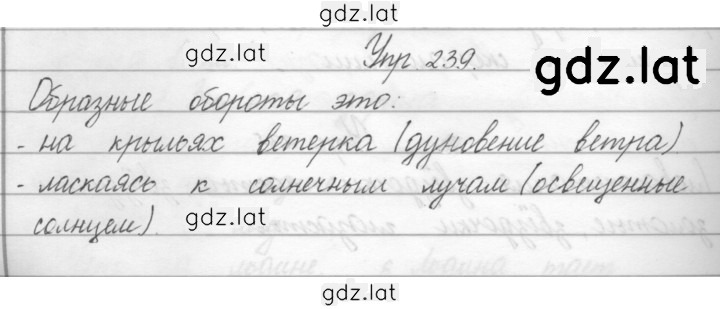 gdz.lat
Упр 239.
gdz.lat
gdz.lat
Образные обороты это:
- на крыльях ветерка (дуновение ветра)
- ласкаясь к солнечным лучам (освещенные
солнцем).
gdz.lat
gdz.lat